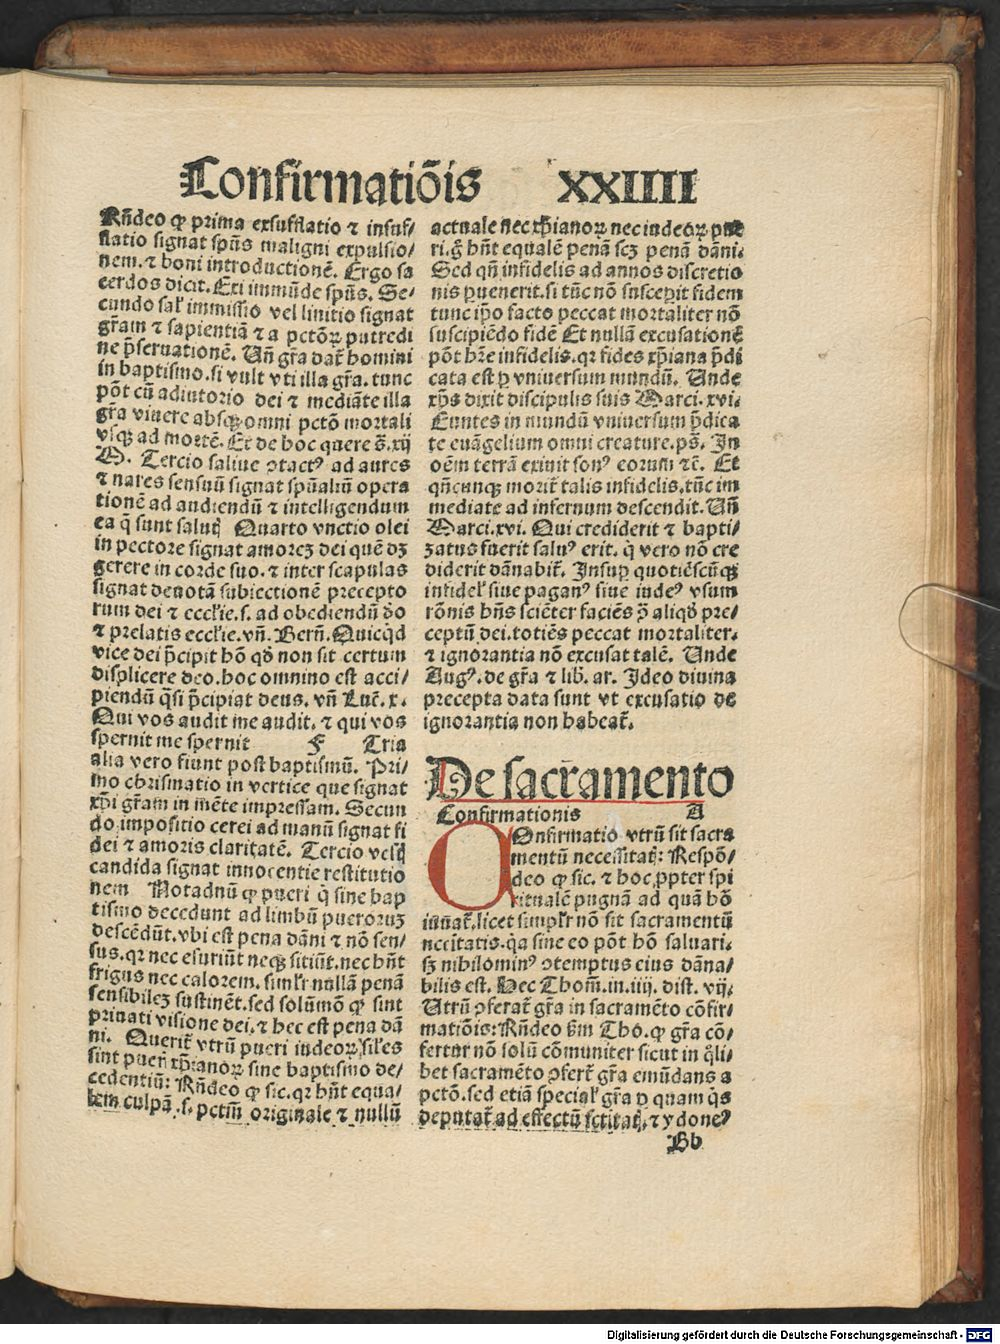 Confirmatiōis XXIIII
Rñdeo ꝙ prima exsufflatio ⁊ insuf⸗
flatio signat spūs maligni expulsio⸗
nem. ⁊ boni introductionē. Ergo sa
cerdos dicit. Exi immūde spūs. Se⸗
cundo sal' immissio vel linitio signat
gr̄am ⁊ sapientiā ⁊ a pctōꝝ putredi
ne p̄seruationē. Uñ gr̄a dat̄ homini
in baptismo. si vult vti illa gr̄a. tunc
pōt cū adiutorio dei ⁊ mediāte illa
gr̄a viuere absqꝫ omni pctō mortali
vsqꝫ ad mortē. Et de hoc quere s̄. xij
M. Tercio saliue ꝯtactꝰ ad aures
⁊ nares sensuū signat spūaliū opera
tionē ad audiendū ⁊ intelligendum
ea q̄ sunt saluꝭ Quarto vnctio olei
in pectore signat amoreꝫ dei quē dꝫ
gerere in corde suo. ⁊ inter scapulas
signat deuotā subiectionē precepto
rum dei ⁊ eccl'ie. s. ad obediendū dō
⁊ prelatis eccl'ie. vñ. Berñ. Quicq̇d
vice dei p̄cipit hō qd̄ non sit certum
displicere deo. hoc omnino est acci⸗
piendū q̄si p̄cipiat deus. vñ Luc̄. x.
Qui vos audit me audit. ⁊ qui vos
spernit me spernit F Tria
alia vero fiunt post baptismū. Pri⸗
mo chrismatio in vertice que signat
xp̄i gr̄am in mēte impressam. Secun
do impositio cerei ad manū signat fi
dei ⁊ amoris claritatē. Tercio vesꝭ
candida signat innocentie restitutio
nem Notadnū ꝙ pueri q̇ sine bap
tismo decedunt ad limbū pueroruꝫ
descēdūt. vbi est pena dāni ⁊ nō sen⸗
sus. qꝛ nec esuriūt neqꝫ sitiūt. nec hn̄t
frigus nec calorem. simlr̄ nullā penā
sensibileꝫ sustinēt. sed solūmō ꝙ sint
priuati visione dei. ⁊ hec est pena dā
ni. Querit̄ vtrū pueri iudeoꝝ siles
sint pueri xp̄ianoꝝ sine baptismo de⸗
cedentiū: Rñdeo ꝙ sic. qꝛ hn̄t equa⸗
lem culpā. s. pctm̄ originale ⁊ nullū
actuale nec xp̄ianoꝝ nec iudeoꝝ pue
ri. g̊ hn̄t equalē penā scꝫ penā dāni.
Sed qñ infidelis ad annos discretio
nis ꝑuenerit. si tūc nō susceꝑit fidem
tunc ip̄o facto peccat mortaliter nō
suscipiēdo fidē Et nullā excusationē
pōt hr̄e infidelis. qꝛ fides xp̄iana p̄di
cata est ꝑ vniuersum mundū. Unde
xp̄s dixit discipulis suis Marci. xvi.
Euntes in mundū vniuersum p̄dica
te euāgelium omni creature. ps̄. In
oēm terrā exiuit sonꝰ eorum ⁊c̄. Et
qñcunqꝫ morit̄ talis infidelis. tūc im
mediate ad infernum descendit. Uñ
Marci. xvi. Qui crediderit ⁊ bapti⸗
zatus fuerit saluꝰ erit. q̇ vero nō cre
diderit dānabit̄. Insuꝑ quotiēscūqꝫ
infidel' siue paganꝰ siue iudeꝰ vsum
rōnis hn̄s sciēter faciēs ꝯ̄ aliqd̄ pre⸗
ceptū dei. totiēs peccat mortaliter.
⁊ ignorantia nō excusat talē. Unde
Augꝰ. de gr̄a ⁊ lib̄. ar. Ideo diuina
precepta data sunt vt excusatio de
ignorantia non habeat̄.
De sacr̄amento
Confirmationis A
COnfirmatio vtrū sit sacra
mentū necessitaꝭ: Respō⸗
deo ꝙ sic. ⁊ hoc ꝓpter spi
ritualē pugnā ad quā hō
iuuat̄. licet simplr̄ nō sit sacramentū
nccītatis. q̇a sine eo pōt hō saluari.
sꝫ nihilominꝰ ꝯtemptus eius dāna⸗
bilis est. Hec Thom̄. in. iiij. dist. vij.
Utrū ꝯferat̄ gr̄a in sacramēto cōfir⸗
matiōis: Rñdeo s̄m Tho. ꝙ gr̄a cō⸗
fertur nō solū cōmuniter sicut in q̇li⸗
bet sacramēto ꝯfert̄ gr̄a emūdans a
pctō. sed etiā special' gr̄a ꝑ quam q̇s
deputat̄ ad effectū sc̄titaꝭ. ⁊ ydoneꝰ
Bb
Digitalisierung gefördert durch die Deutsche Forschungsgemeinschaft - DFG